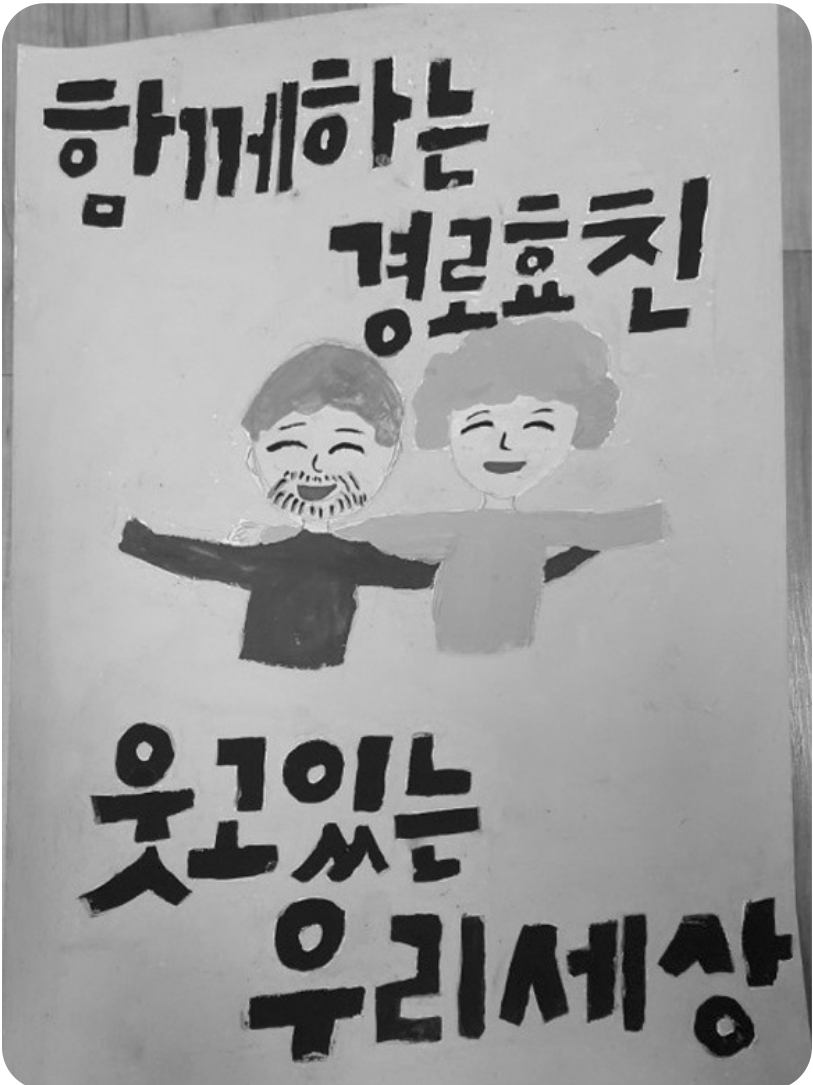 함께하는
경로효친
웃고있는
우리세상